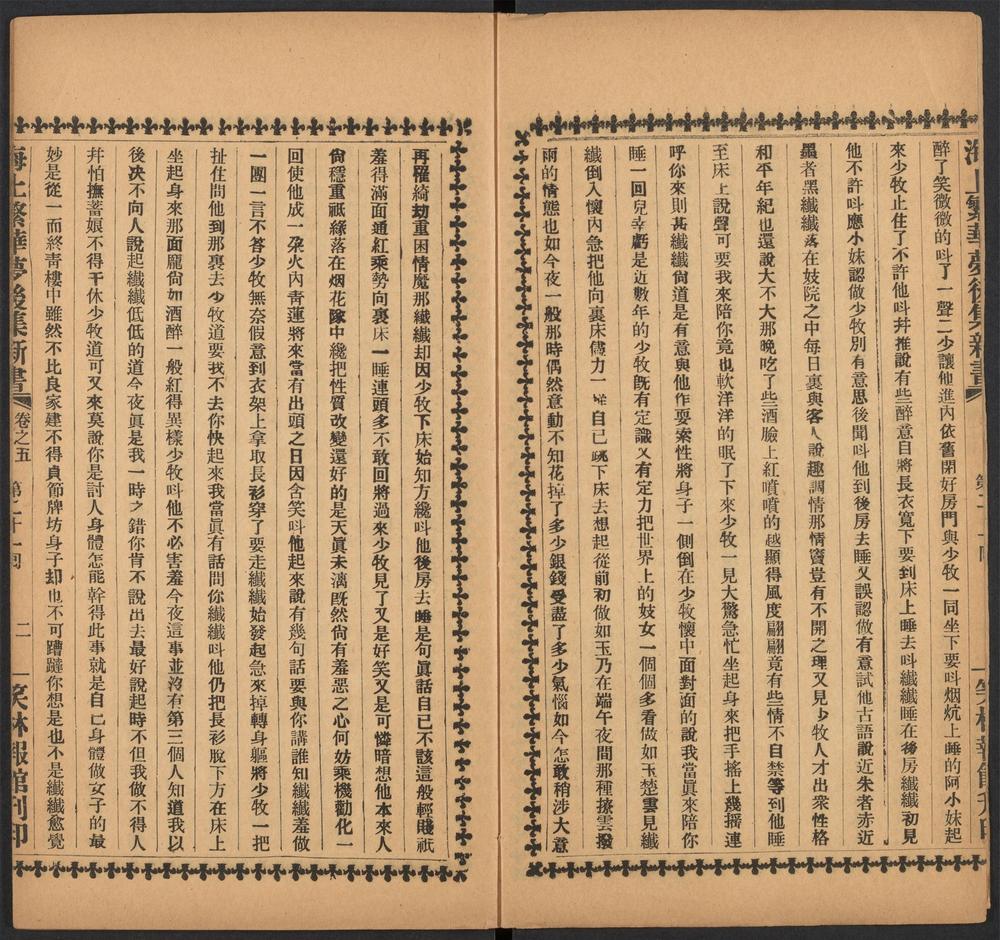 海上繁華夢後集新書
笑林報館刊印
醉了笑微微的呌了一聲二少讓他進內依舊閉好房門與少牧一同坐下要呌烟炕上睡的阿小妹起
來少牧止住了不許他呌幷推說有些醉意自將長衣寬下要到床上睡去呌纖纖睡在後房纖纖初見
他不許呌應小妹認做少牧別有意思後聞呌他到後房去睡又誤認做有意試他古語說近朱者赤近
墨者黑纖纖落在妓院之中每日裏與客人說趣調情那情竇豈有不開之理又見少牧人才出衆性格
和平年紀也還說大不大那晚吃了些酒臉上紅噴噴的越顯得風度翩翩竟有些情不自禁等到他睡
至床上說聲可要我來陪你竟也軟洋洋的眠了下來少牧一見大驚急忙坐起身來把手搖上幾搖連
呼你來則甚纖纖尙道是有意與他作耍索性將身子一側倒在少牧懷中面對面的說我當眞來陪你
睡一回兒幸虧是近數年的少牧旣有定識又有定力把世界上的妓女一個個多看做如玉楚雲見纖
纖倒入懷內急把他向裏床儘力一推自己跳下床去想起從前初做如玉乃在端午夜間那種撩雲撥
雨的情態也如今夜一般那時偶然意動不知花掉了多少銀錢受盡了多少氣惱如今怎敢稍涉大意
再罹綺劫重困情魔那纖纖却因少牧下床始知方纔呌他後房去睡是句眞話自已不該這般輕賤祇
羞得滿面通紅乘勢向裏床一睡連頭多不敢回將過來少牧見了又是好笑又是可憐暗想他本來人
尙穩重祇緣落在烟花隊中纔把性質改變還好的是天眞未漓旣然尙有羞惡之心何妨乘機勸化一
回使他成一朶火內靑蓮將來當有出頭之日因含笑呌他起來說有幾句話要與你講誰知纖纖羞做
一團一言不答少牧無奈假意到衣架上拿取長衫穿了要走纖纖始發起急來掉轉身軀將少牧一把
扯住問他到那裏去少牧道要我不去你快起來我當眞有話問你纖纖呌他仍把長衫脫下方在床上
坐起身來那面龐尙如酒醉一般紅得異樣少牧呌他不必害羞今夜這事並沒有第三個人知道我以
後决不向人說起纖纖低低的道今夜眞是我一時之錯你肯不說出去最好說起時不但我做不得人
幷怕撫蓄娘不得干休少牧道可又來莫說你是討人身體怎能幹得此事就是自己身體做女子的最
妙是從一而終靑樓中雖然不比良家建不得貞節牌坊身子却也不可蹧蹋你想是也不是纖纖愈覺
海上繁華夢後集新書
卷之五
第二十一回
二
笑林報館刊印